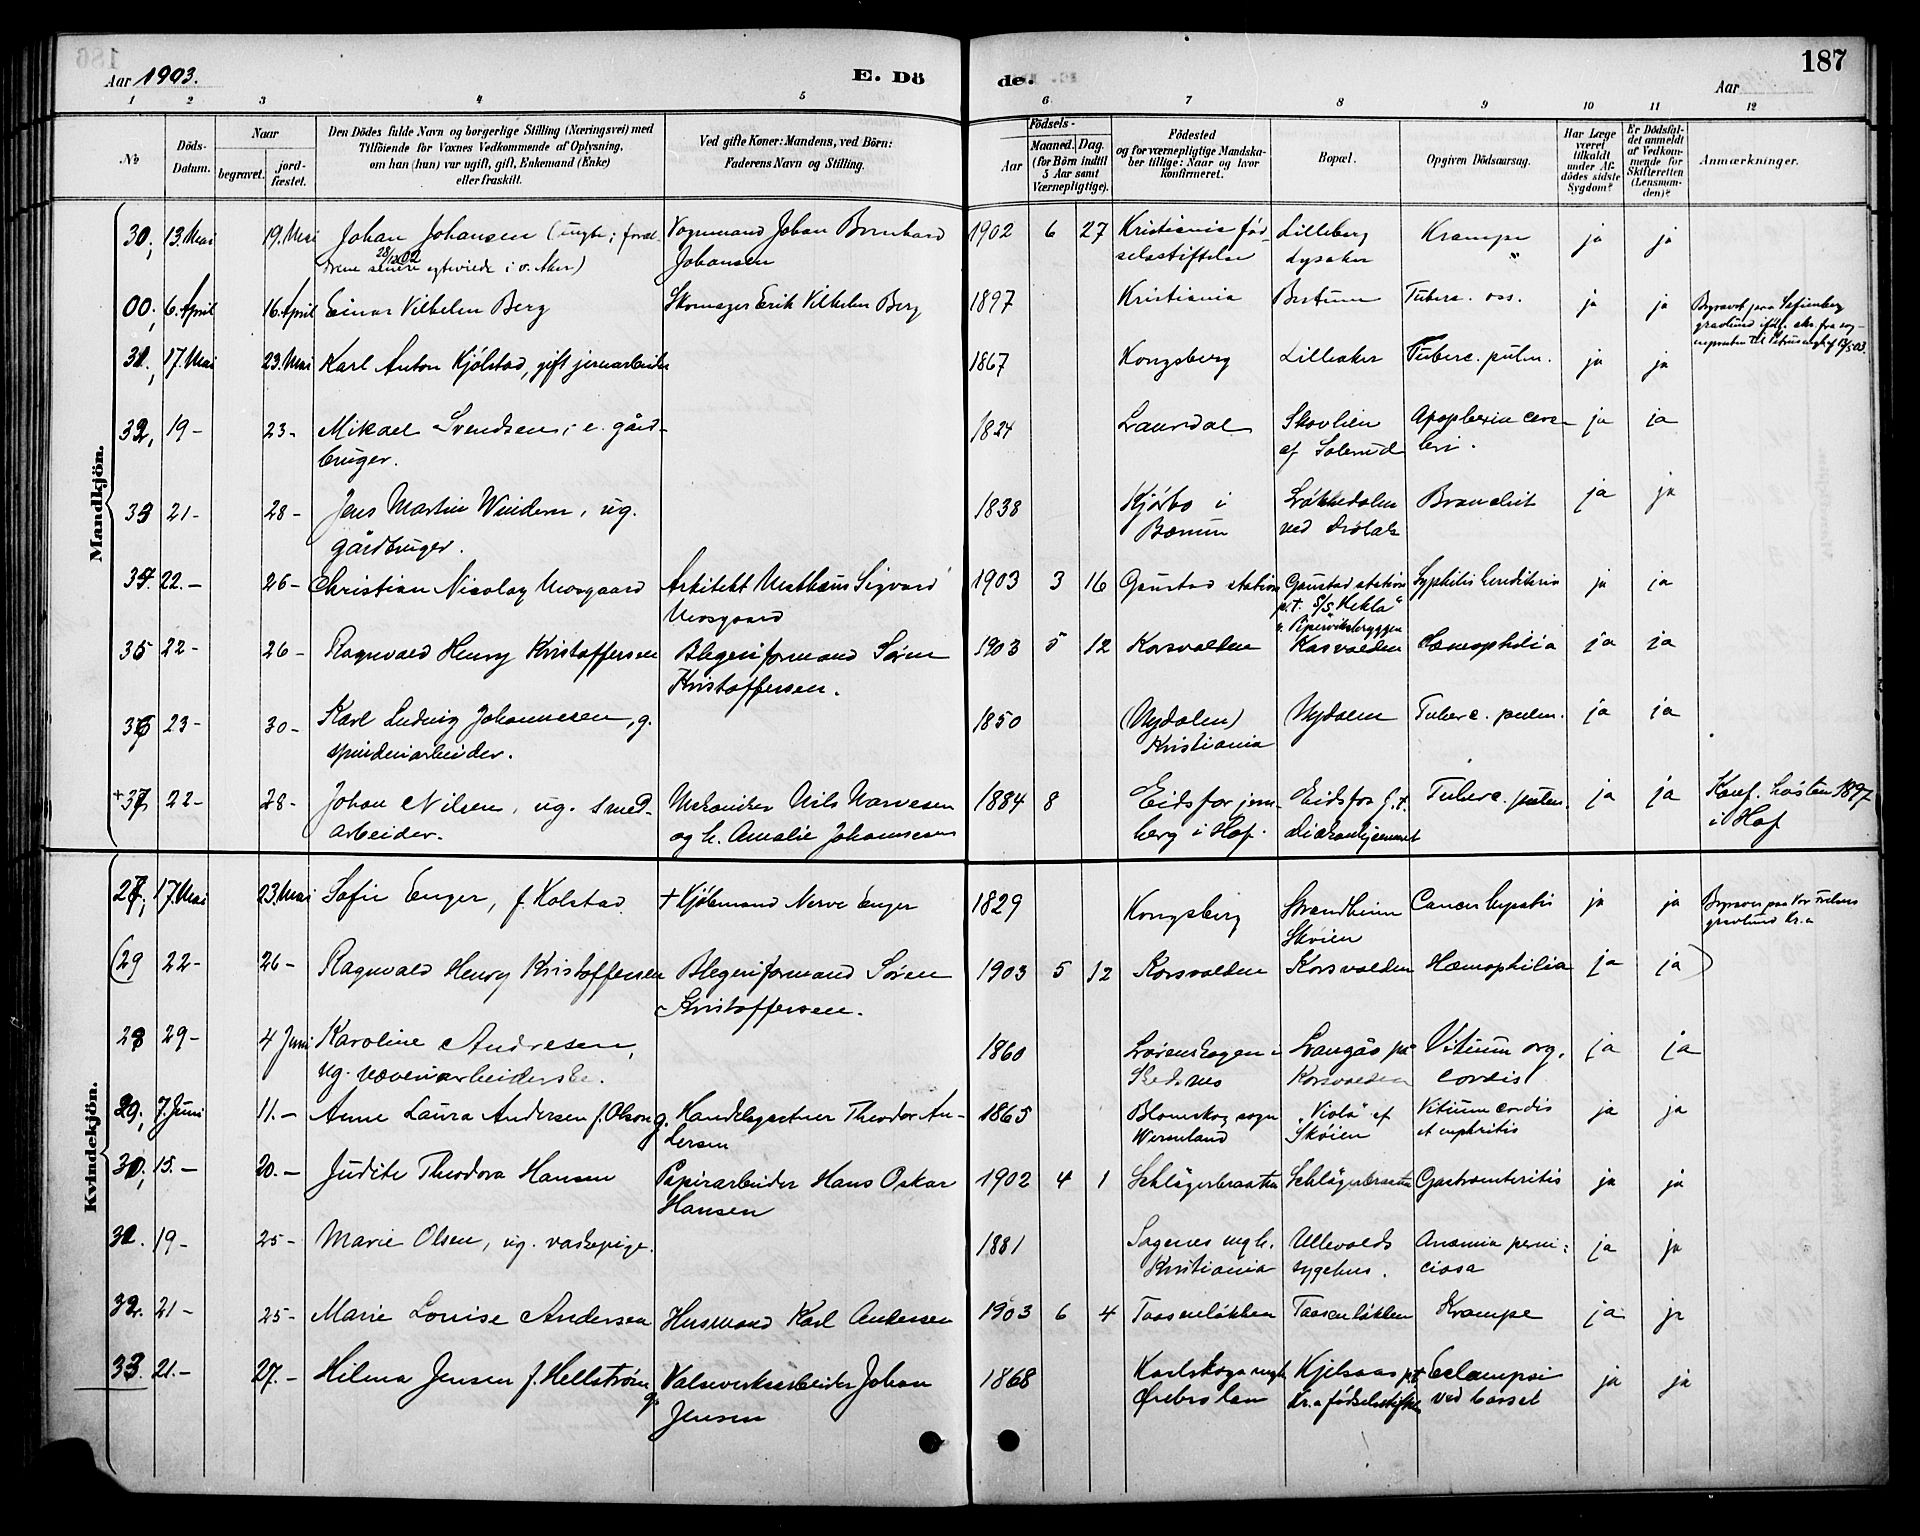 Aar 1903.
E. Dö
de.
187
Aar
1 2 3 4 5 6 7 8 9 10 11 12
No
Döds-
Datum.
Naar
begravet.
jord-
fæstet.
Den Dödes fulde Navn og borgerlige Stilling (Næringsvei) med
Tilföiende for Voxnes Vedkommende af Oplysning,
om han (hun) var ugift, gift, Enkemand (Enke)
eller fraskilt.
Ved gifte Koner: Mandens, ved Börn:
Faderens Navn og Stilling.
Födsels-
Aar
Maaned.
Dag.
(for Börn indtil
5 Aar samt
Værnepligtige).
Födested
og for værnepligtige Mandska-
ber tillige: Naar og hvor
konfirmeret.
Bopæl.
Opgiven Dödsaarsag.
Har Læge
været
tilkaldt
under Af-
dödes sidste
Sygdom?
Er Dödsfal-
det anmeldt
af Vedkom-
mende for
Skifteretten
(Lensman-
den)?
Anmærkninger.
Mandkjön.
30, 13. Mai 19. Mai Johan Johansen (ungk; foræl- Vognmand Johan Bernhard 1902 6 27 Kristiania fød- Lilleberg Krampe ja ja
drene senere 28/12 02 egteviede i v. Aker) Johansen selsstiftelse Lysaker
00, 6. April 16. April Einar Vilhelm Berg Skomager Erik Vilhelm Berg 1897 Kristiania Bestum Tuberc. oss. ja ja Begravet paa Sofienberg
gravlund
31, 17. Mai 23. Mai Karl Anton Kjølstad, gift jernarbeider 1867 Kongsberg Lilleaker Tuberc. pulm. ja ja
32, 19- 23- Mikael Svendsen, e. gård- 1824 Laurdal Skovlien Apoplexia cere- ja ja
bruger. af Solerud bri.
33 21- 28- Jens Martin Windern, ug. 1838 Kjørbo i Løkkedalen Brandsår ja ja
gårdbruger. Bærum ved Drøbak
34. 22.- 26- Christian Nicolay Mosgaard Arkitekt Matthæus Sigvard 1903 3 16 Gaustad station Gaustad station Syphilis hereditaria ja ja
Mosgaard p.t. S/S "Hekla"
v. Pipervikbryggen
35 22- 26- Ragnvald Henry Kristoffersen Blegeriformand Søren 1903 5 12 Korsvolden Korsvolden Hæmophilia ja ja
Kristoffersen.
36 23- 30- Karl Ludvig Johannesen, g. 1850 (Nydalen) Nydalen Tuberc. pulm. ja ja
spinderiarbeider. Kristiania
+37 22- 28- Johan Nilsen, ug. smed- Mekaniker Nils Narvesen 1884 8 Eidsfos jern- Eidsfos p.t. Tuberc. pulm. ja ja Konf. høsten 1897
arbeider. og h. Amalie Johannesen berg i Hof. Diakonhjemmet i Hof
Kvindekjön.
27, 17. Mai 23. Mai Sofie Enger, f. Kolstad. + Kjøbmand Nerve Enger 1829 Kongsberg Strandheim Cancer hepatis ja ja Begravet paa Vor Frelsers
Skøien gravlund Kr.a
(29 22- 26- Ragnvald Henry Kristoffersen Blegeriformand Søren 1903 5 12 Korsvolden Korsvolden Hæmophilia ja ja)
Kristoffersen.
28 29- 4 Juni Karoline Andresen, 1860 Lørenskogen i Langås på Vitium org. ja ja
ug. væveriarbeiderske. Skedsmo Korsvolden cordis
29, 7. Juni 11.- Anne Laura Andersen f. Olson g. Handelsgartner Theodor An- 1865 Blomskog sogn "Viola" af Vitium cordis ja ja
dersen Wermland Skøien et nephritis
30, 15.- 20.- Judite Theodora Hansen Papirarbeider Hans Oskar 1902 4 1 Schlägerbraaten Schlägerbraaten Gastroenteritis ja ja
Hansen
31. 19- 25- Marie Olsen, ug. vaskepige. 1881 Sagenes mgh. Ullevolds Anæmia perni- ja ja
Kristiania sygehus. ciosa
32. 21- 25- Marie Louise Andersen Husmand Karl Andersen 1903 6 4 Taasenløkken Taasenløkken Krampe ja ja
33. 21.- 27.- Hilma Jensen f. Hellstrøm g. Valseverksarbeider Johan 1868 Karlskoga mgh. Kjelsaas p.t. Eclampsi ja ja
Jensen Ørebro län Kr.a fødselsstiftelse ved barsel